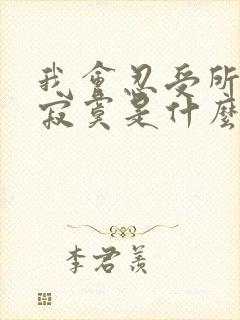 我會忍受所
寂寞是什麼
李君羨